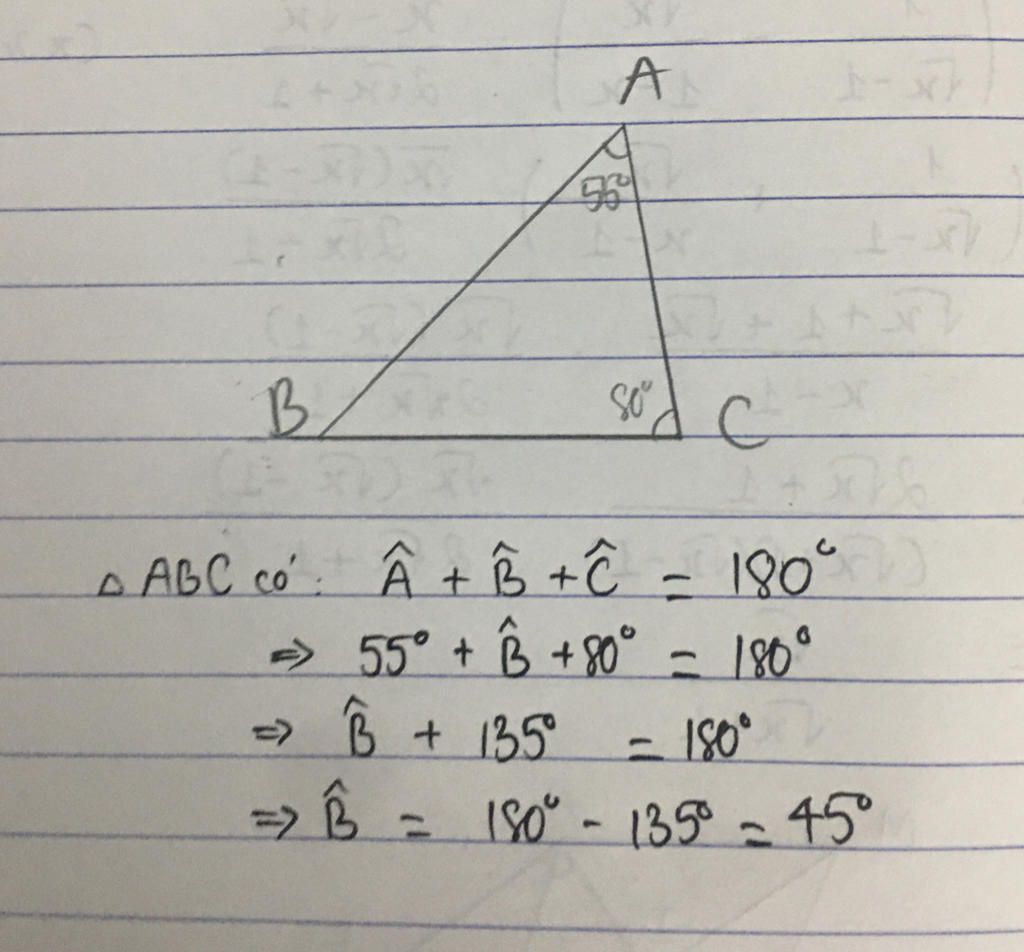 A
55°
B
80°
C
△ ABC có: Â + B̂ + Ĉ = 180°
⇒ 55° + B̂ + 80° = 180°
⇒ B̂ + 135° = 180°
⇒ B̂ = 180° - 135° = 45°